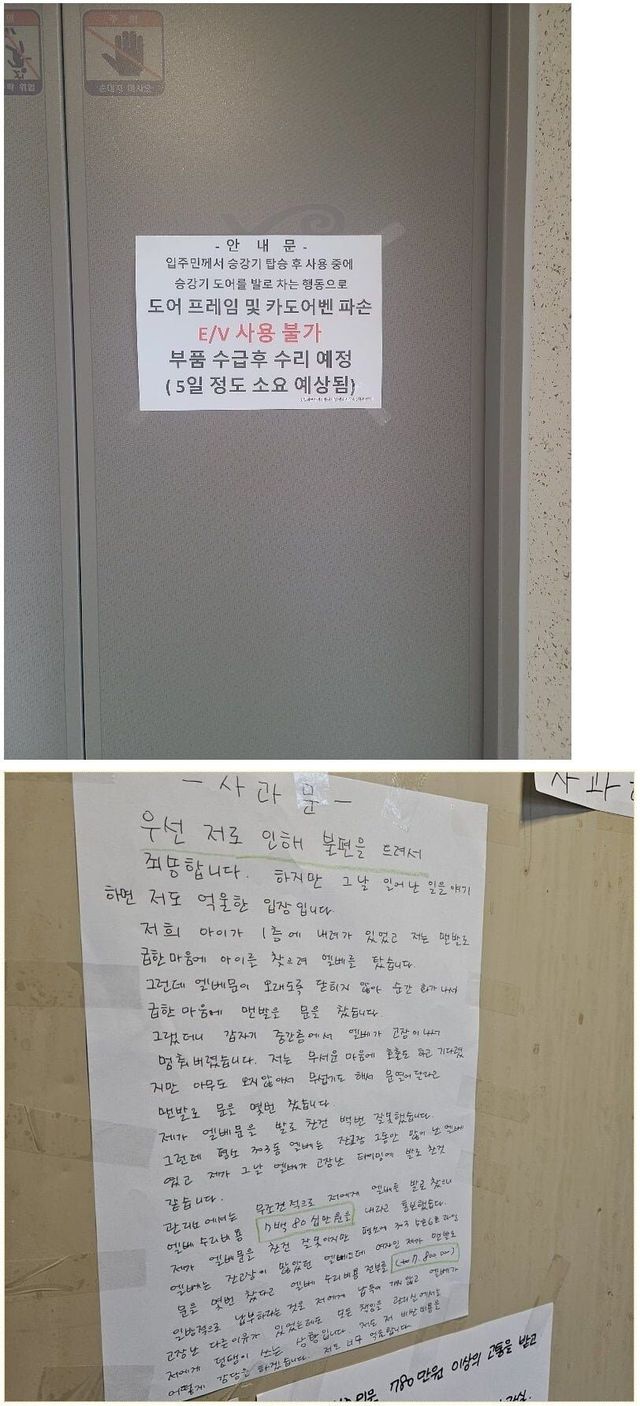 주 의
손대지 마시오
- 안 내 문 -
입주민께서 승강기 탑승 후 사용 중에
승강기 도어를 발로 차는 행동으로
도어 프레임 및 카도어벤 파손
E/V 사용 불가
부품 수급후 수리 예정
( 5일 정도 소요 예상됨)
- 사 과 문 -
우선 저로 인해 불편을 드려서
죄송합니다. 하지만 그날 일어난 일을 얘기
하면 저도 억울한 입장입니다
저희 아이가 1층에 내려가 있었고 저는 맨발로
급한마음에 아이를 찾으려 엘베를 탔습니다.
그런데 엘베문이 오래도록 닫히지 않아 순간 화가나서
급한 마음에 맨발로 문을 찼습니다.
그랬더니 갑자기 중간층에서 엘베가 고장이나서
멈춰버렸습니다. 저는 무서운 마음에 호출도 하고 기다렸
지만 아무도 오지않아서 무섭기도 해서 문열어달라고
맨발로 문을 몇번 찼습니다
제가 엘베문을 발로 찬건 백번 잘못했습니다.
그런데 평소 303동 엘베는 잔고장 그동안 많이 난 엘베
였고 제가 그날 엘베가 고장난 타이밍에 발로 찬것
같습니다.
관리소에서는 무조건적으로 저에게 엘베를 발로 찼으니
엘베 수리비용 7백 80 십만원을 내라고 통보했습니다.
제가 엘베문을 찬건 잘못이지만 평소에 303
엘베는 잔고장이 많았던 엘베인데 여자인 제가 맨발로
문을 몇번 찼다고 엘베 수리비용 전부를 (7.800.000)
일방적으로 납부하라는것은 저에게 납득이 가지 않고 엘베가
고장난 다른이유가 있었는데도 모든 책임을
저에게 덤탱이 쓰는 상황입니다 저는 저 비싼 비용을
어떻게 감당을 하겠습니다. 저도 너무 억울합니다
사과
780만원 이상의 고통을 받고